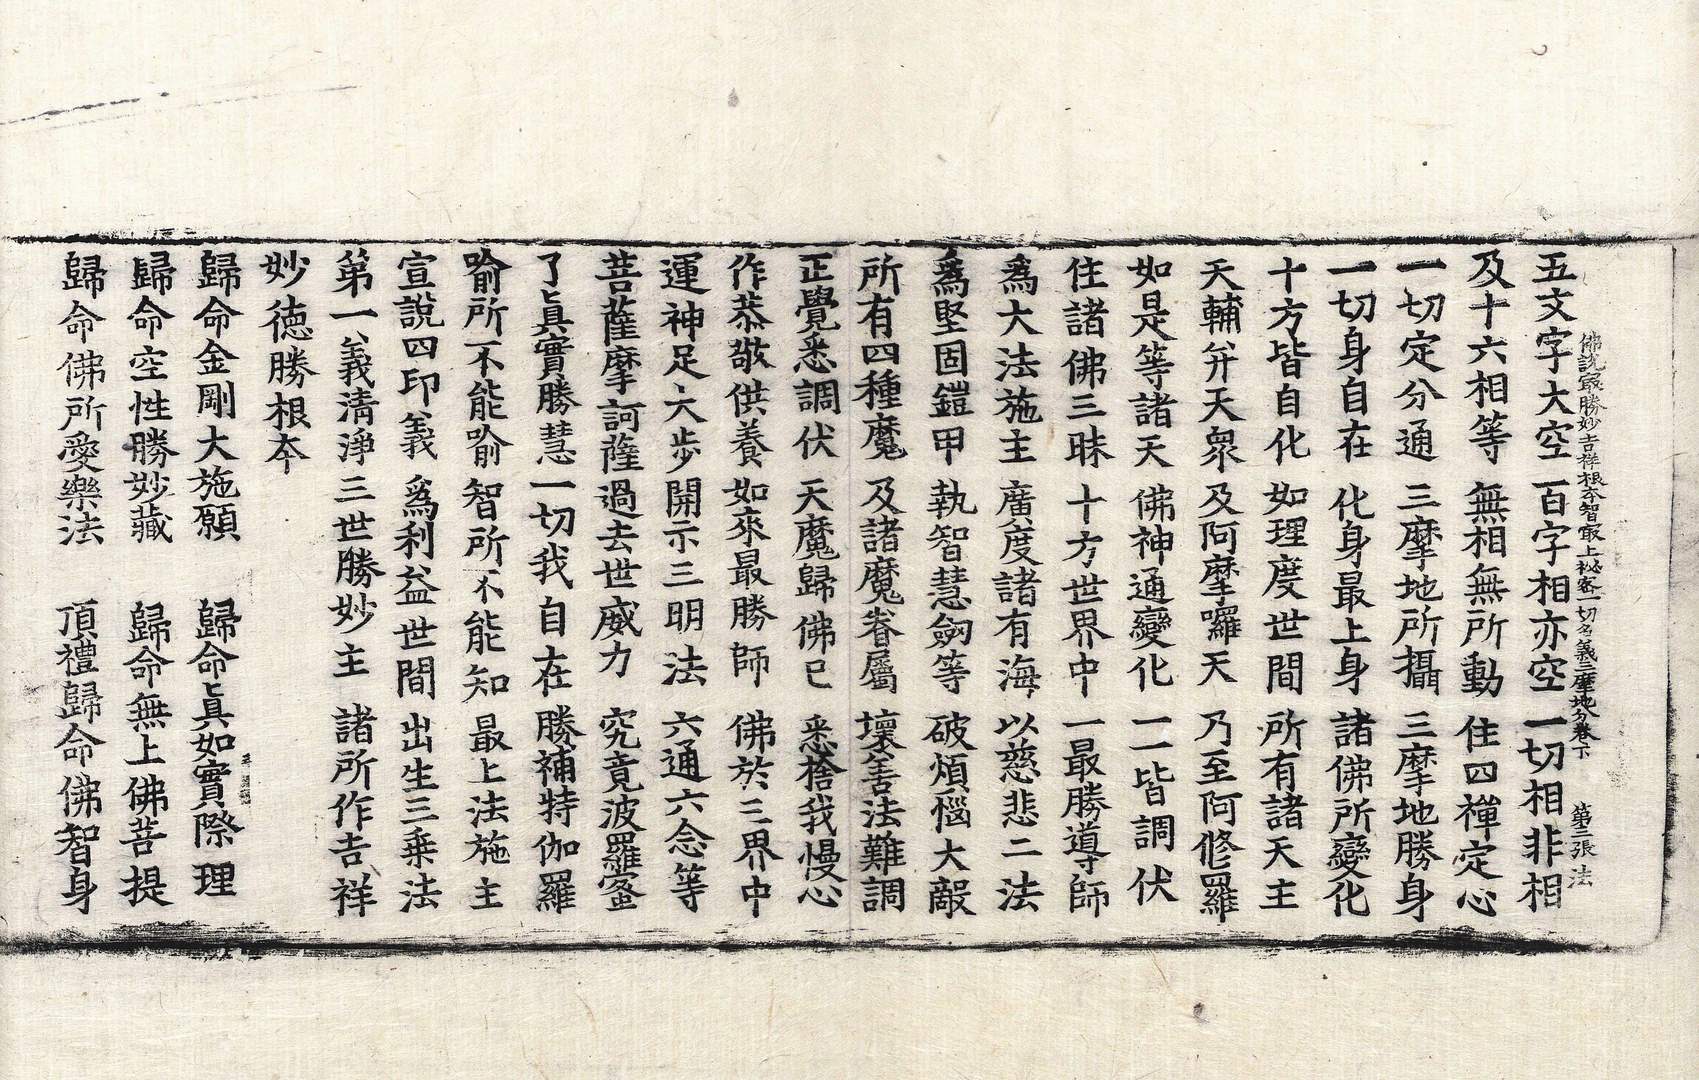 佛説最勝妙吉祥根夲智最上祕密一切名義三摩地分卷下　第三張　法
五文字大空　百字相亦空　一切相非相
及十六相等　無相無所動　住四禪定心
一切定分通　三摩地所攝　三摩地勝身
一切身自在　化身最上身　諸佛所變化
十方皆自化　如理度世間　所有諸天主
天輔并天衆　及阿摩囉天　乃至阿修羅
如是等諸天　佛神通變化　一一皆調伏
住諸佛三昧　十方世界中　一最勝導師
爲大法施主　廣度諸有海　以慈悲二法
爲堅固鎧甲　執智慧劒等　破煩惱大敵
所有四種魔　及諸魔眷屬　壞善法難調
正覺悉調伏　天魔歸佛已　悉捨我慢心
作恭敬供養　如來最勝師　佛於三界中
運神足六步　開示三明法　六通六念等
菩薩摩訶薩　過去世威力　究竟波羅蜜
了眞實勝慧　一切我自在　勝補特伽羅
喻所不能喻　智所不能知　最上法施主
宣說四印義　爲利益世間　出生三乗法
第一義清淨　三世勝妙主　諸所作吉祥
妙徳勝根夲
歸命金剛大施願　歸命眞如實際理
歸命空性勝妙藏　歸命無上佛菩提
歸命佛所愛樂法　頂禮歸命佛智身